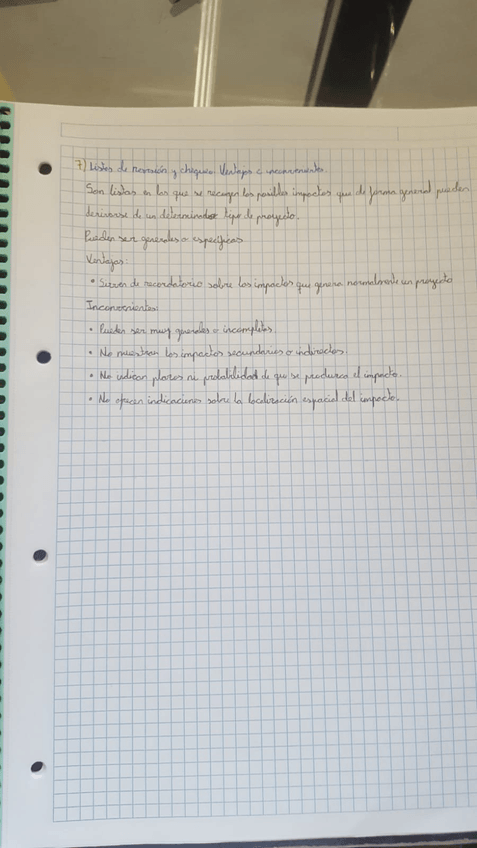 7) Listas de revisión y chequeo. Ventajas e inconvenientes.
Son listas en las que se recogen los posibles impactos que de forma general pueden
derivarse de un determinado tipo de proyecto.
Pueden ser generales o específicas
Ventajas:
• Sirven de recordatorio sobre los impactos que genera normalmente un proyecto
Inconvenientes:
• Pueden ser muy generales o incompletas
• No muestran los impactos secundarios o indirectos.
• No indican plazos ni probabilidad de que se produzca el impacto.
• No ofrecen indicaciones sobre la localización espacial del impacto.